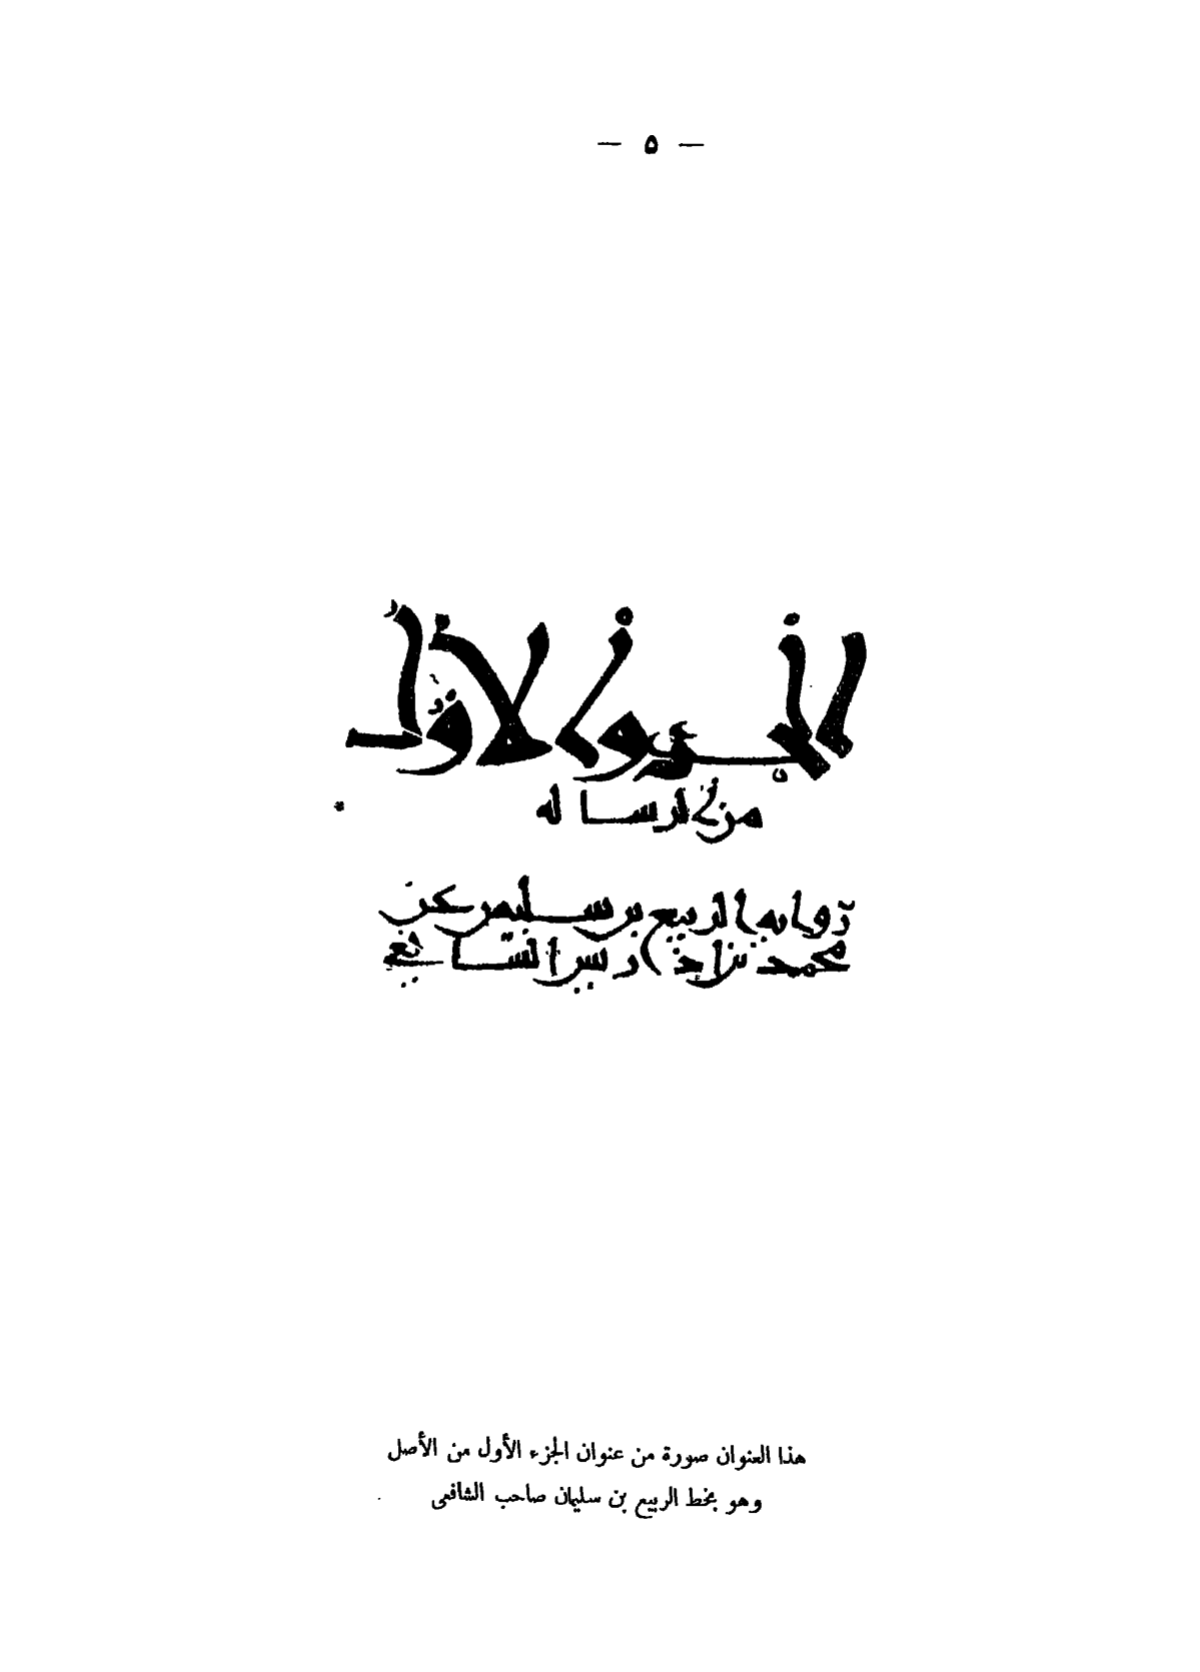 — ٥ —
الجزء الأول
من الرسالة
رواية الربيع بن سليمن عن
محمد بن ادريس الشافعي
هذا العنوان صورة من عنوان الجزء الأول من الأصل
وهو بخط الربيع بن سليمان صاحب الشافعى